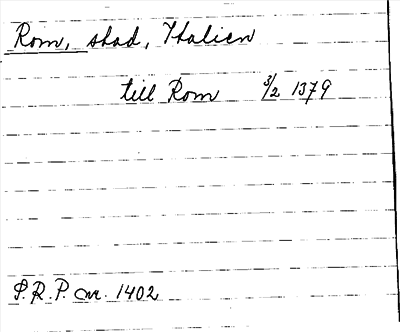 Rom, stad, Italien
till Rom 3/2 1379
S.R.P. nr. 1402